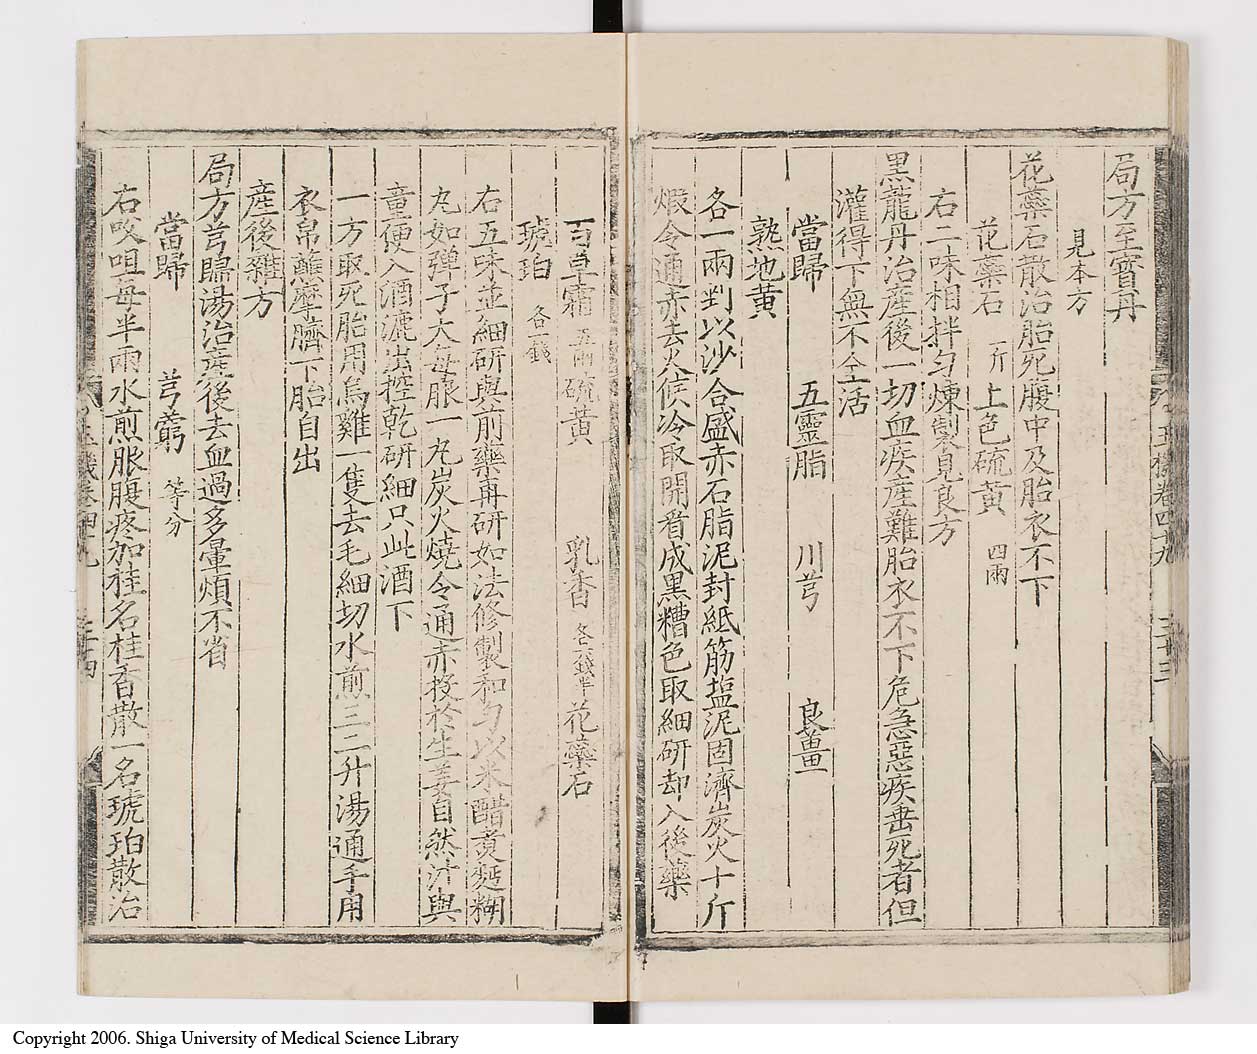 局方至寳丹
見本方
花蘂石散治胎死腹中及胎衣不下
花蘂石 一斤 上色硫黄 四兩
右二味相拌匀煉製見良方
黑龍丹治産後一切血疾産難胎衣不下危急惡疾垂死者但
灌得下無不全活
當歸 五靈脂 川芎 良薑
熟地黄
各一兩剉以沙合盛赤石脂泥封紙筋塩泥固濟炭火十斤
煆令通赤去火候冷取開看成黒糟色取細研却入後藥
百草霜 五兩 硫黄 乳香 各二錢半 花蘂石
琥珀 各一錢
右五味並細研與前藥再研如法修製和匀以米醋煑麵糊
丸如彈子大每服一丸炭火燒令通赤投於生姜自然汁與
童便入酒漉出控乾研細只此酒下
一方取死胎用烏雞一隻去毛細切水煎三二升湯通手用
衣帛蘸摩臍下胎自出
産後雜方
局方芎歸湯治産後去血過多暈煩不省
當歸 芎藭 等分
右㕮咀每半兩水煎脹腹疼加桂名桂香散一名琥珀散治
Copyright 2006. Shiga University of Medical Science Library